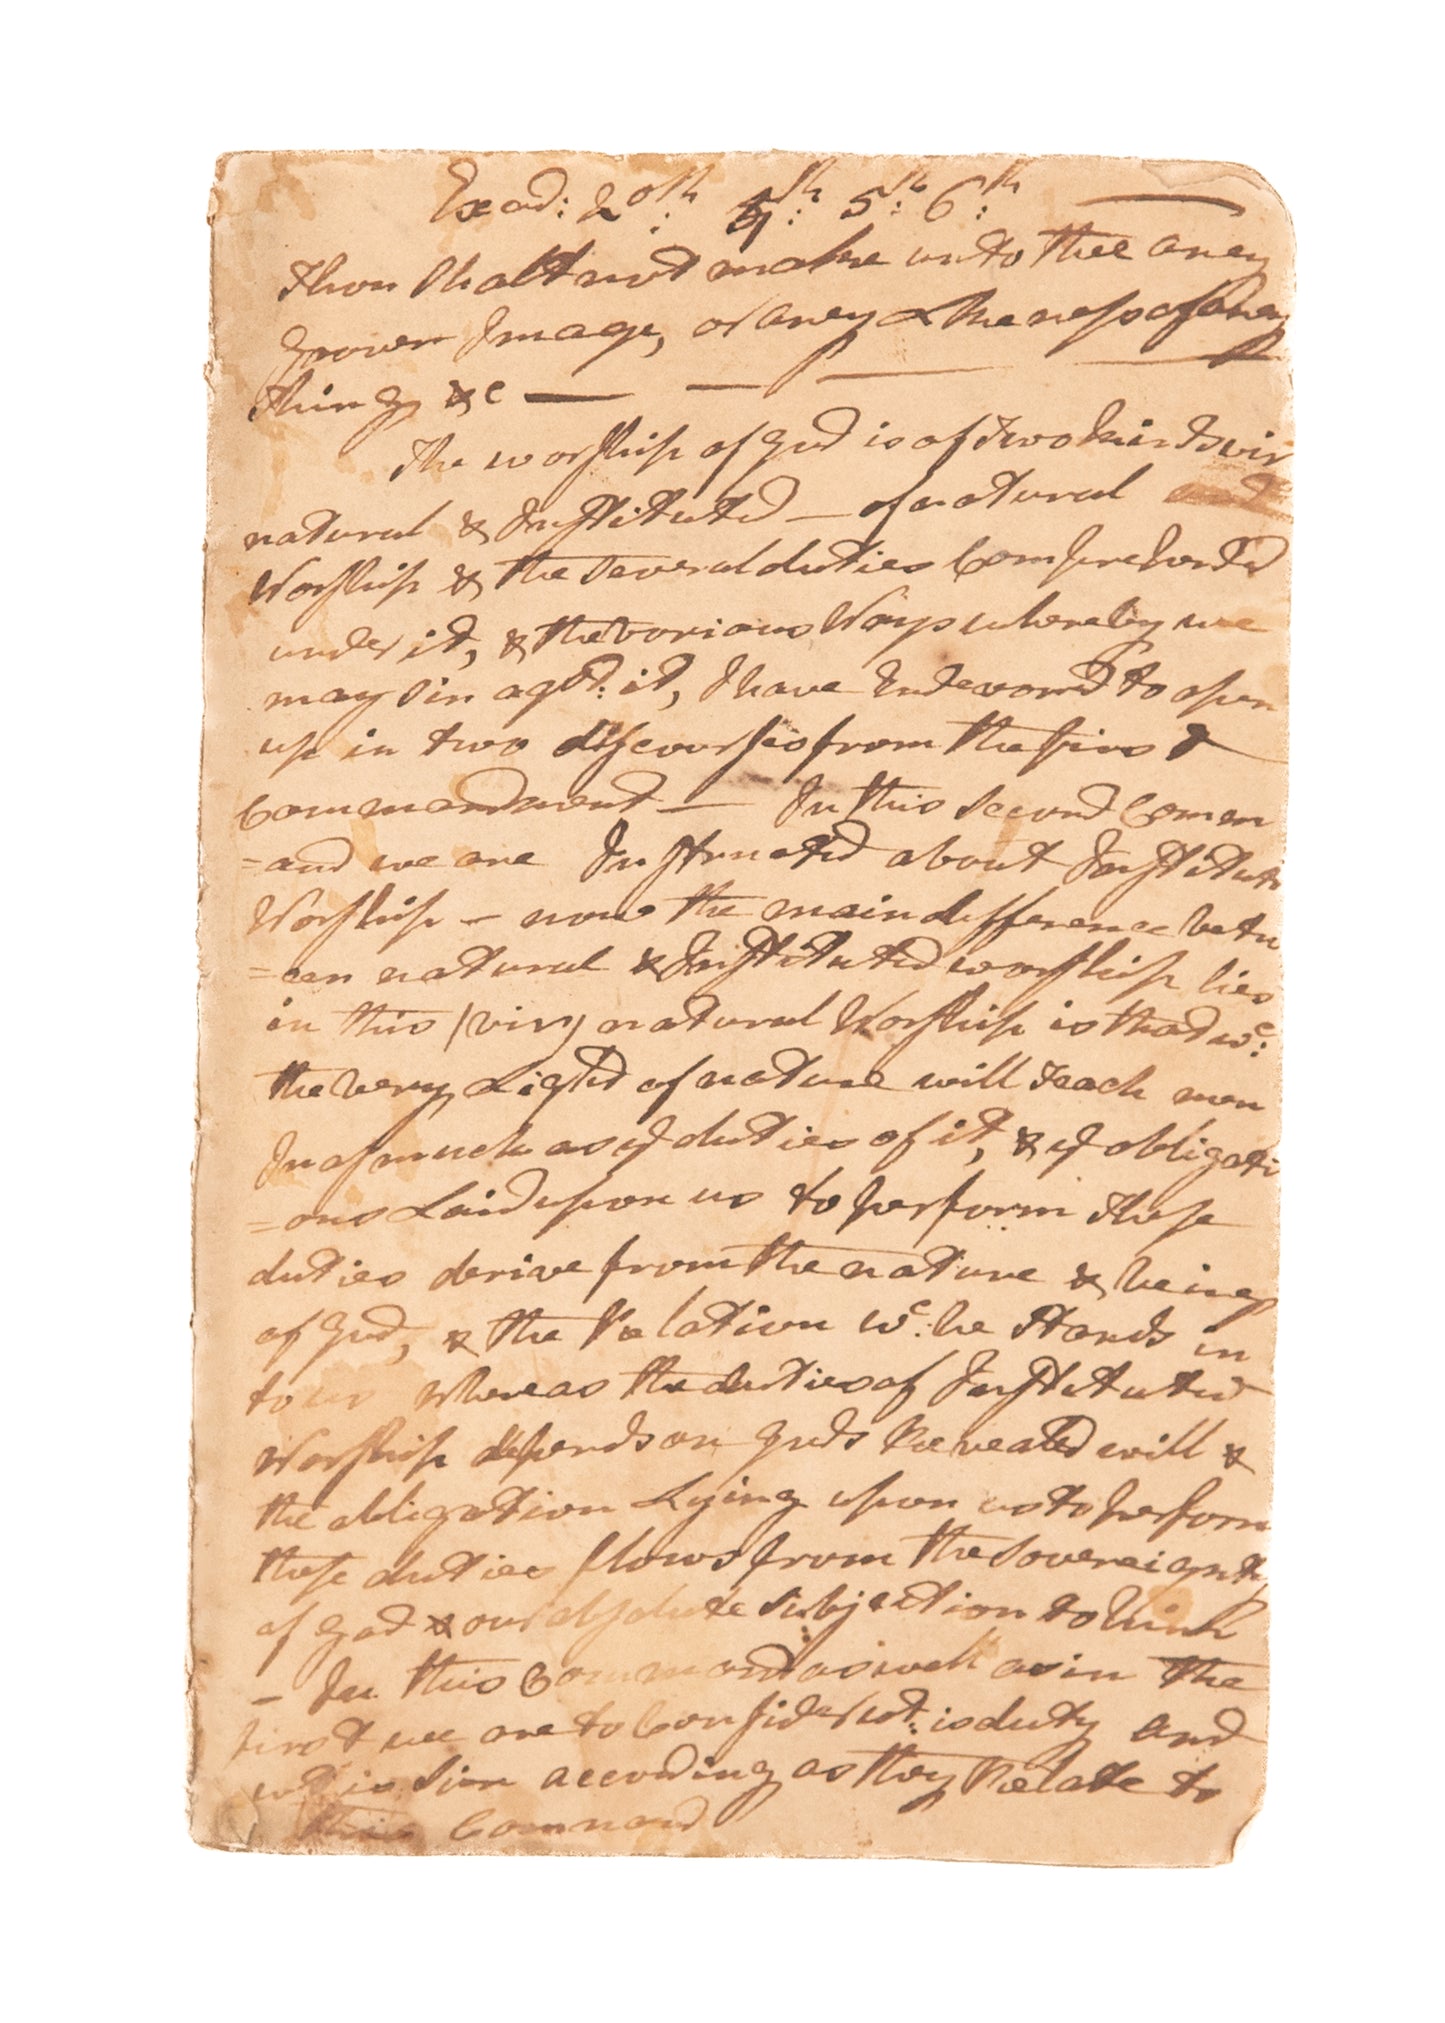 Exod: 20th. 4th: 5th: 6th:
Thou Shalt not make unto thee aney
graven Image, or aney Likeness of aney
thing &c
The worship of god is of two kinds viz
natural & Instituted — of natural
Worship & the Several duties Comprehended
under it, & the various Ways whereby we
may Sin agst: it, I have Endeavord to open
up in two discourses from the first
Commandment — In this Second Comm
=and we are Instructed about Institute
Worship — now the main difference betw
=een natural & Instituted worship lies
in this (viz) natural Worship is that wc:
the very Light of nature will teach men
Inasmuch as ye duties of it, & ye obligati
=ons Laid upon us to perform these
duties derive from the nature & being
of god, & the Relation wc: he Stands in
to us Whereas the duties of Instituted
Worship depends on gods Revealed will &
the obligation Lying upon us to perform
these duties flows from the Sovereignty
of god & our absolute Subjection to him
— In this Command as well as in the
first we are to Consider wt: is duty and
wt: is Sin according as they Relate to
this Command